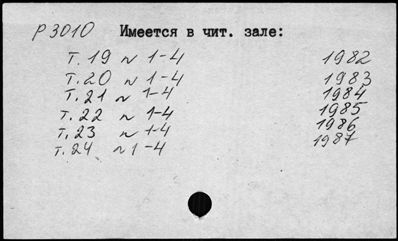 Р 3010 Имеется в чит. зале:
т. 19 № 1-4 1982
т. 20 № 1-4 1983
т. 21 № 1-4 1984
т. 22 № 1-4 1985
т. 23 № 1-4 1986
т. 24 № 1-4 1987